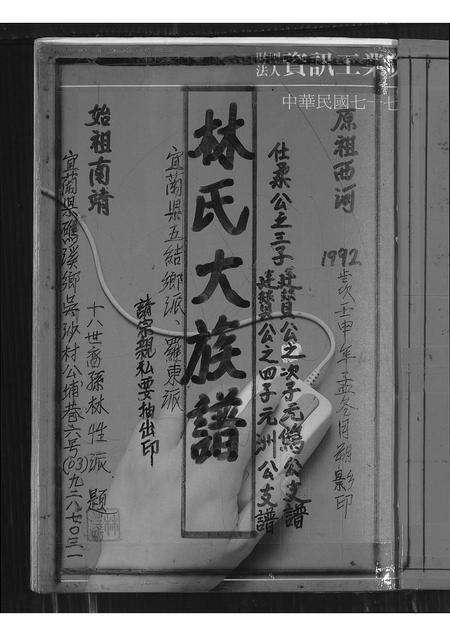 資訊工業
中華民國七十七
原祖西河
1992歲壬申年孟冬月朔影印
仕柔公之三子廷贊公之次子元鷄公支譜
廷贊公之四子元洲公支譜
林氏大族譜
宜蘭縣五結鄉派、羅東派
請宗親私要抽出印
始祖南靖
十八世裔孫林性派題
宜蘭縣礁溪鄉吳沙村公埔巷六号(03)九二八七〇三一